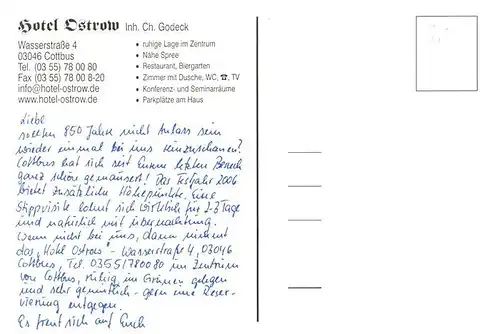 Hotel Ostrow Inh. Ch. Godeck
Wasserstraße 4
03046 Cottbus
Tel. (03 55) 78 00 80
Fax (03 55) 78 00 8-20
info@hotel-ostrow.de
www.hotel-ostrow.de
• ruhige Lage im Zentrum
• Nähe Spree
• Restaurant, Biergarten
• Zimmer mit Dusche, WC, ☎, TV
• Konferenz- und Seminarräume
• Parkplätze am Haus
Liebe
sollten 850 Jahre nicht Anlass sein
wieder einmal bei uns reinzuschauen?
Cottbus hat sich seit Eurem letzten Besuch
ganz schön gemausert! Das Festjahr 2006
bietet zusätzliche Höhepunkte. Eine
Stippvisite lohnt sich wirklich für 2-3 Tage
und natürlich mit Übernachtung.
Wenn nicht bei uns, dann nimmt
das „Hotel Ostrow" - Wasserstraße 4, 03046
Cottbus, Tel. 0355/780080 im Zentrum
von Cottbus, ruhig im Grünen gelegen
und sehr gemütlich - gern eine Reser-
vierung entgegen.
Es freut sich auf Euch